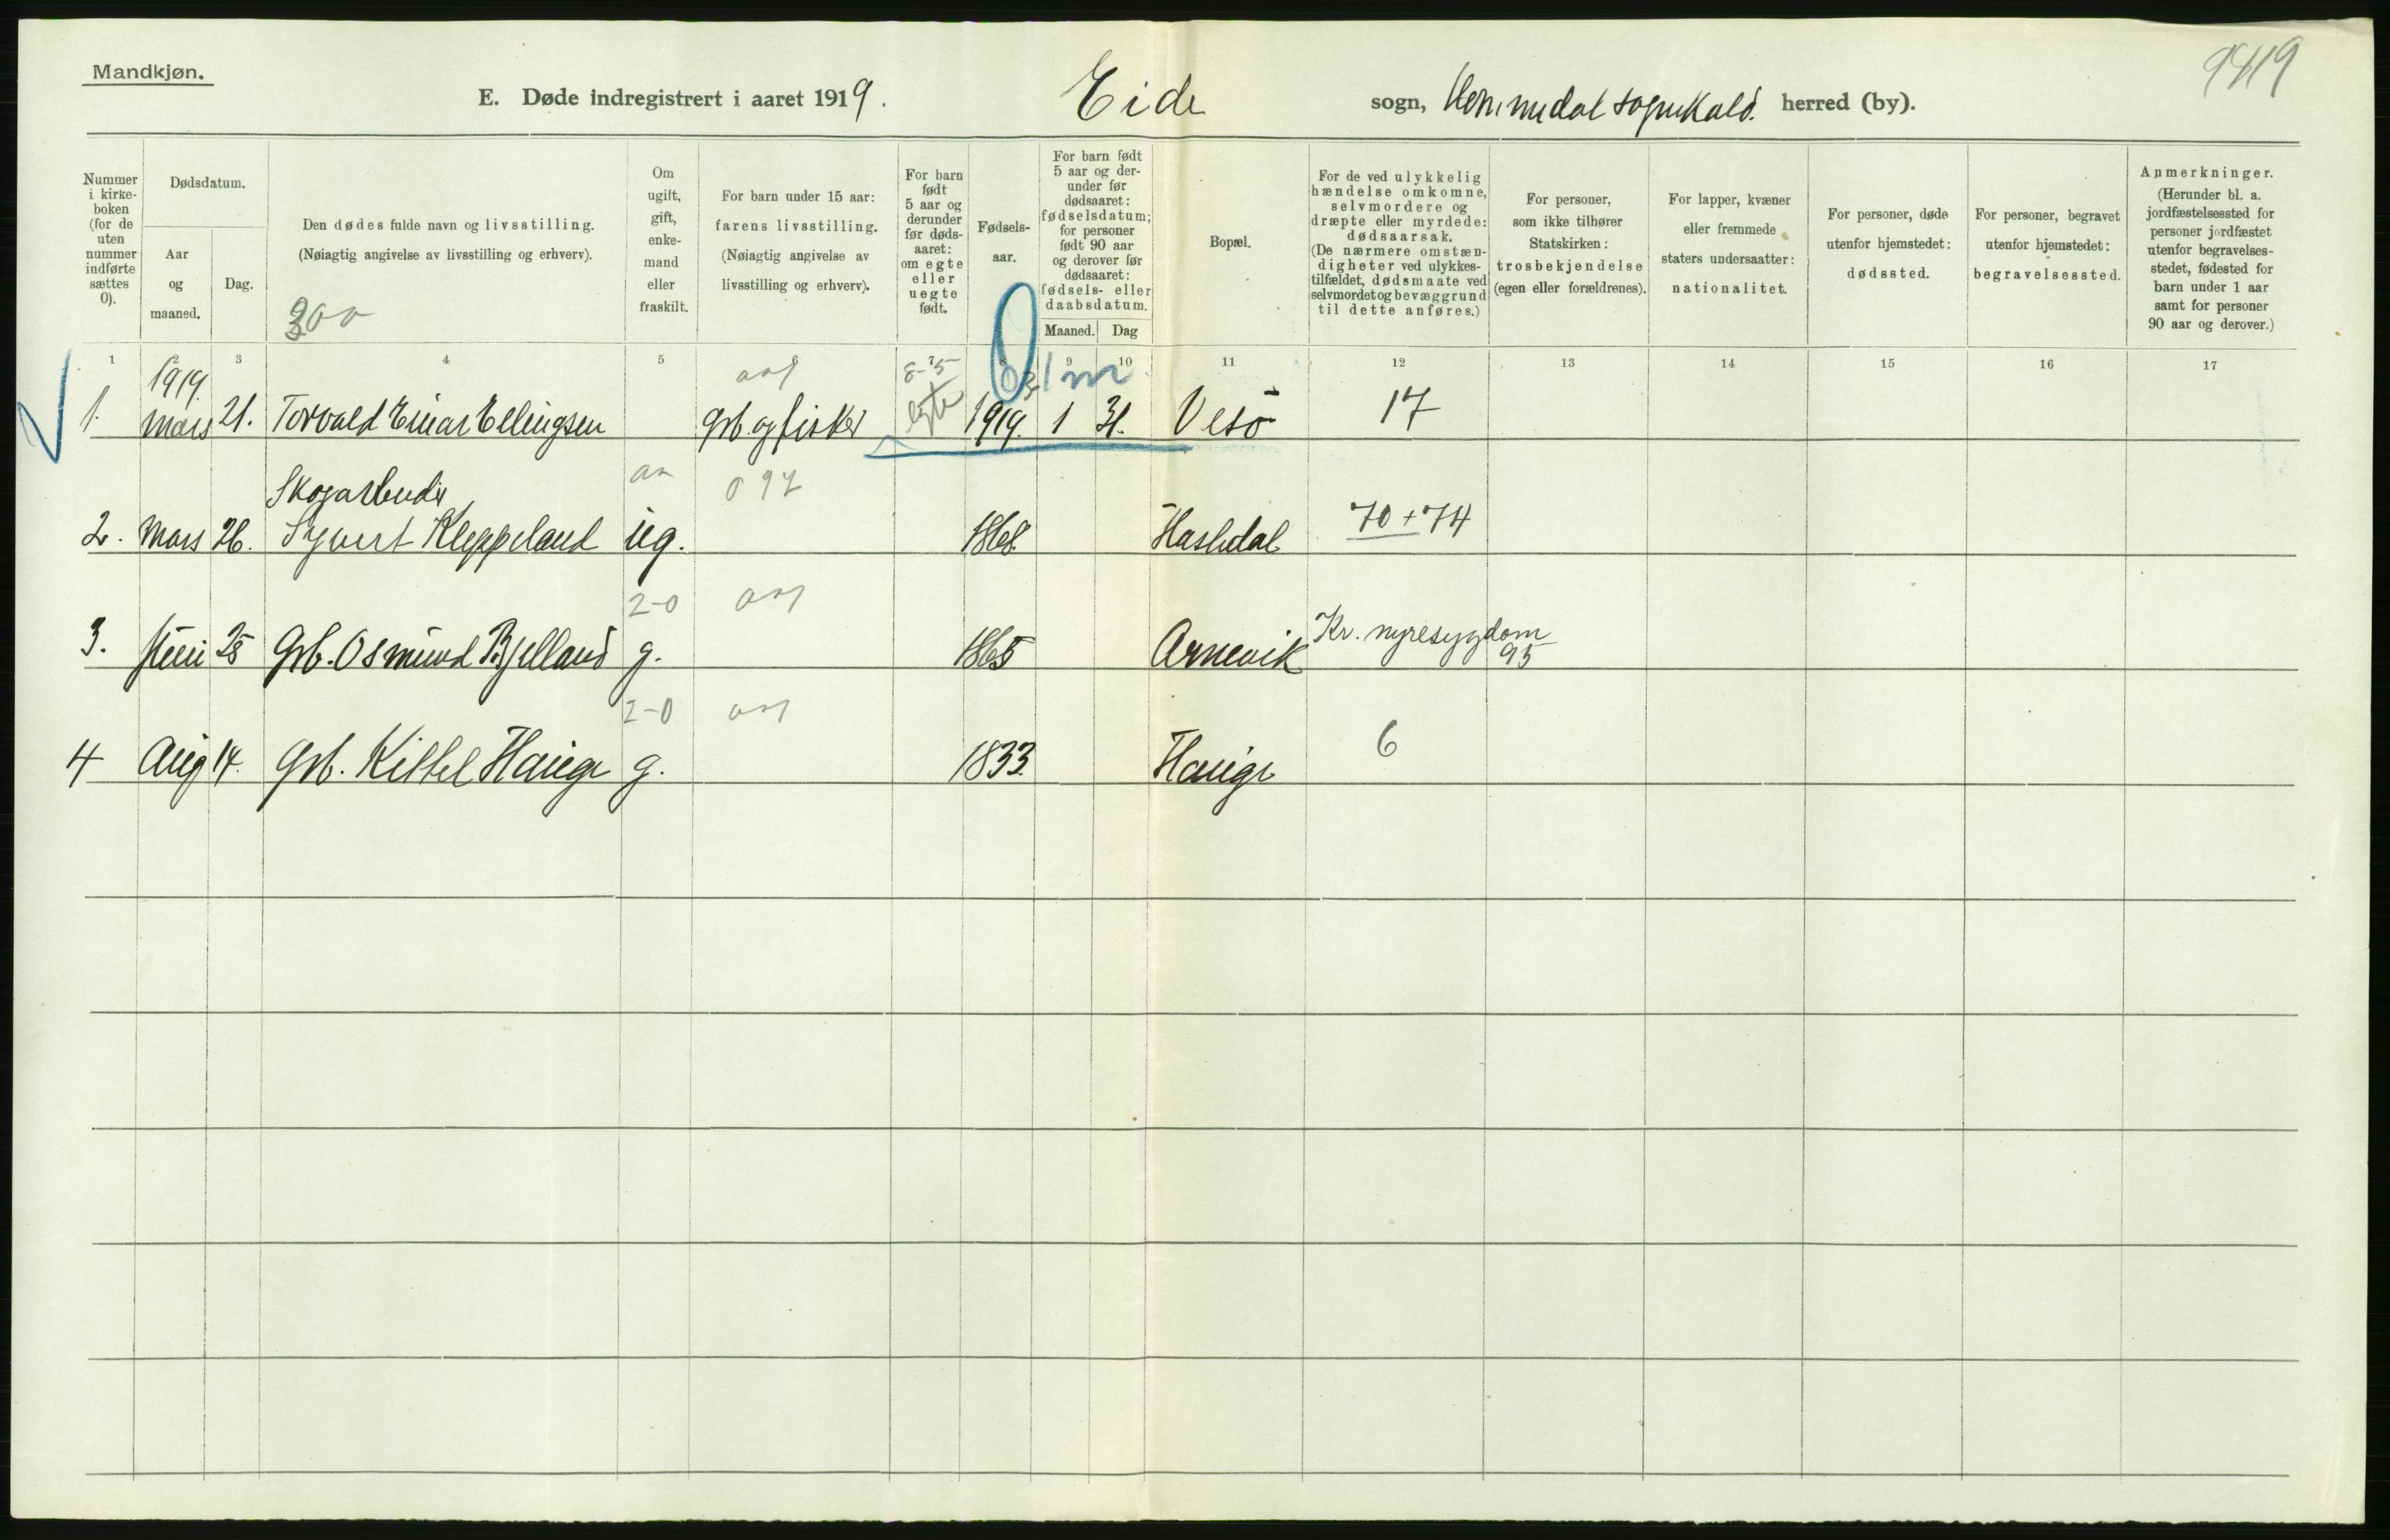 Mandkjøn.
9419
E. Døde indregistrert i aaret 1919.
Eide sogn, Hommedal sognekald. herred (by).
Nummer i kirkeboken (for de uten nummer indførte sættes 0).
Dødsdatum.
Aar og maaned.
Dag.
Den dødes fulde navn og livsstilling.
(Nøiagtig angivelse av livsstilling og erhverv).
300
Om ugift, gift, enkemand eller fraskilt.
For barn under 15 aar: farens livsstilling.
(Nøiagtig angivelse av livsstilling og erhverv).
For barn født 5 aar og derunder før dødsaaret: om egte eller uegte født.
Fødselsaar.
For barn født 5 aar og derunder før dødsaaret: fødselsdatum; for personer født 90 aar og derover før dødsaaret: fødsels- eller daabsdatum.
Maaned. Dag
Bopæl.
For de ved ulykkelig hændelse omkomne, selvmordere og dræpte eller myrdede: dødsaarsak.
(De nærmere omstændigheter ved ulykkestilfældet, dødsmaate ved selvmordet og bevæggrund til dette anføres.)
For personer, som ikke tilhører Statskirken: trosbekjendelse (egen eller forældrenes).
For lapper, kvæner eller fremmede staters undersaatter: nationalitet.
For personer, døde utenfor hjemstedet: dødssted.
For personer, begravet utenfor hjemstedet: begravelsessted.
Anmerkninger.
(Herunder bl. a. jordfæstelsessted for personer jordfæstet utenfor begravelsesstedet, fødested for barn under 1 aar samt for personer 90 aar og derover.)
1 2 3 4 5 6 7 8 9 10 11 12 13 14 15 16 17
1919. 8-5 1 m
1. mars 21. Torvald Einar Ellingsen Grb. og fisker egte 1919. 1 31. Vesö 17
Skogarbeider 097
2. Mars 26. Syvert Kleppeland ug. 1868 Hasledal 70+74
2-0
3. Juni 25 Grb. Osmund Bjelland g. 1865 Arnevik Kr. nyresygdom 95
2-0
4 Aug 14. Grb. Kittel Hauge g. 1833. Hauge 6